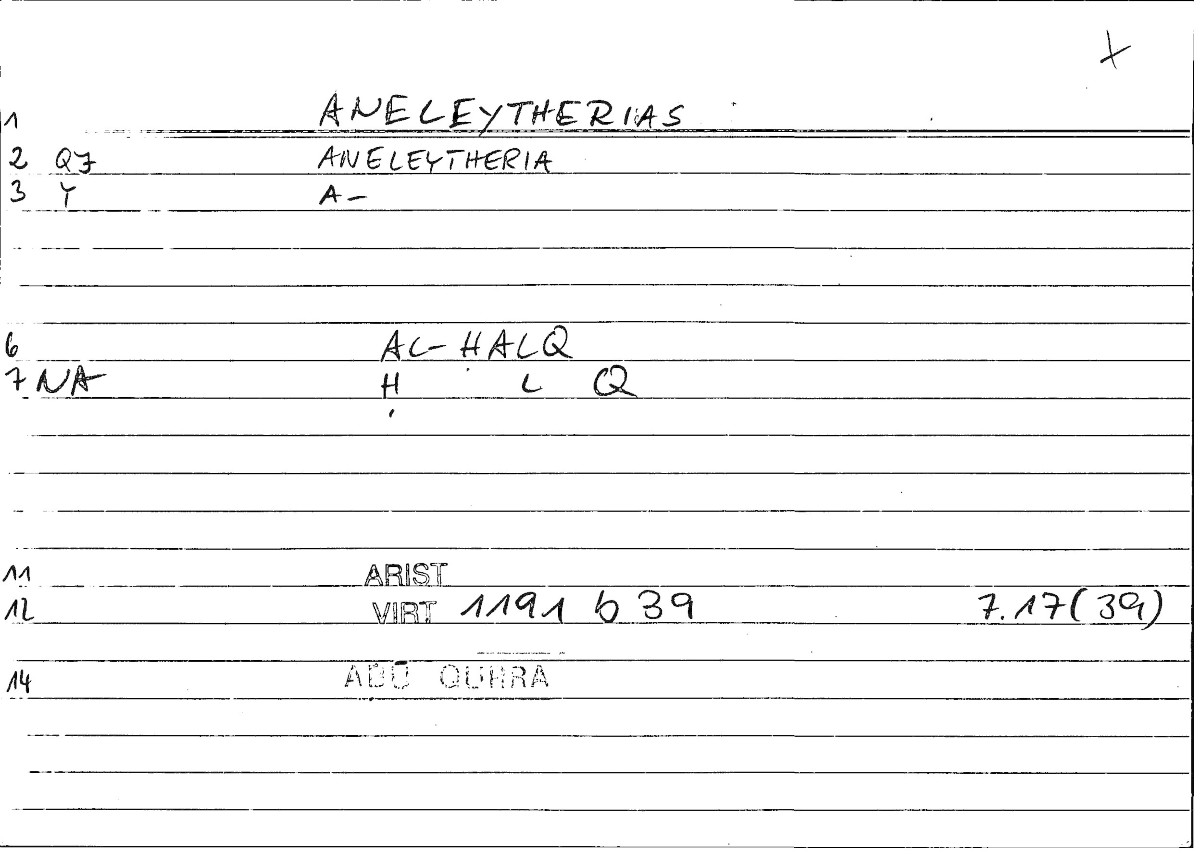 1 ANELEYTHERIAS
2 Q7 ANELEYTHERIA
3 Y A-
6 AL-ḤALQ
7 NA Ḥ L Q
11 ARIST
12 VIRT 1191 b 39 7.17(39)
14 ABŪ QURRA